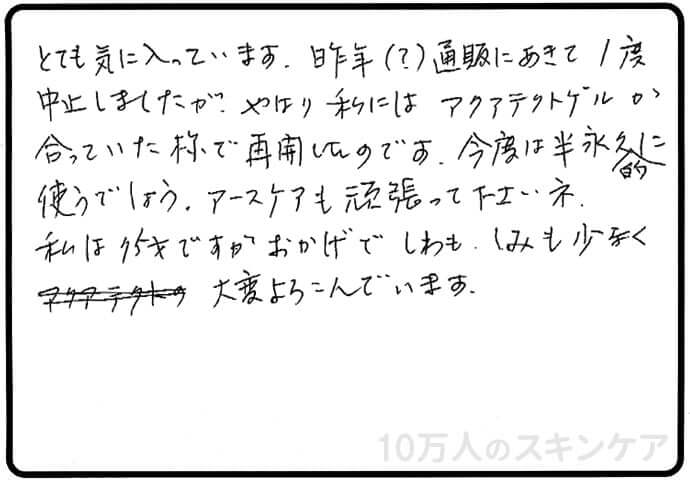 とても気に入っています。昨年(?)通販にあきて1度
中止しましたが、やはり私にはアクアテクトゲルが
合っていた様で再開したのです。今度は半永久的に
使うでしょう。アースケアも頑張って下さいネ。
私は 才ですがおかげでしわも、しみも少なく
アクアテクトの 大変よろこんでいます。
10万人のスキンケア